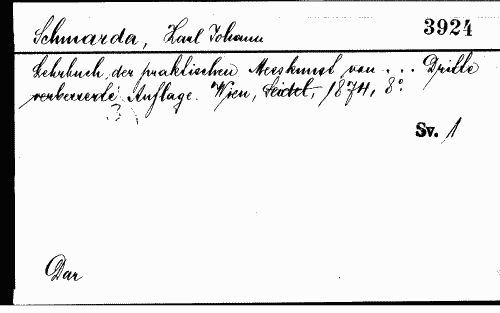 Schmarda, Karl Johann 3924
Lehrbuch der praktischen Messkunst von ... Dritte
verbesserte Auflage. Wien, Seidel, 1874, 8°.
3
Sv. 1
Dar